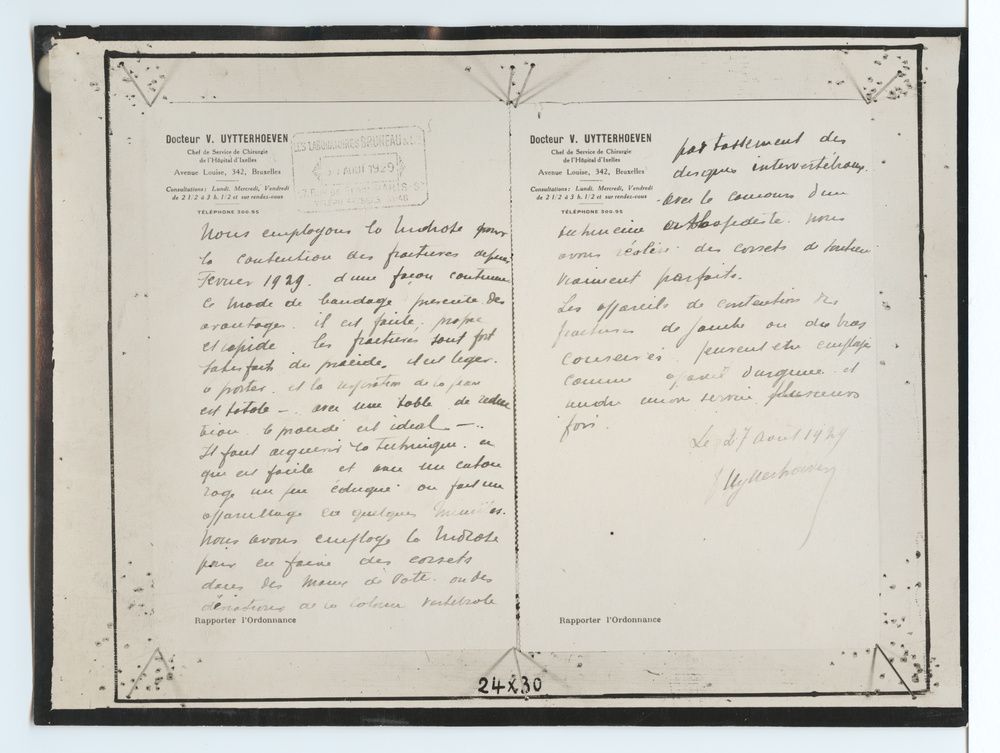 Docteur V. UYTTERHOEVEN
Chef de Service de Chirurgie
de l'Hôpital d'Ixelles
Avenue Louise, 342, Bruxelles
Consultations: Lundi, Mercredi, Vendredi
de 2 1/2 à 3 h. 1/2 et sur rendez-vous
TÉLÉPHONE 300.95
LES LABORATOIRES BRUNEAU &
AOUT 1929
PARIS
Nous employons la Hidrose pour
la contention des fractures depuis
Fevrier 1929. d'une façon continue
Ce mode de bandage presente des
avantages. il est facile, propre
et rapide les fracturés sont fort
satisfaits du procédé, il est leger.
a porter. et la respiration de la peau
est totale — avec une table de reduc
tion le procédé est ideal —.
Il faut acquerir la technique. ce
qui est facile et avec un entou
rage un peu éduqué on fait un
appareillage en quelques minutes.
Nous avons employé la Hidrose
pour en faire des corsets
dans des Maux de Pott. ou des
déviations de la colonne vertebrale
Rapporter l'Ordonnance
Docteur V. UYTTERHOEVEN
Chef de Service de Chirurgie
de l'Hôpital d'Ixelles
Avenue Louise, 342, Bruxelles
Consultations: Lundi, Mercredi, Vendredi
de 2 1/2 à 3 h. 1/2 et sur rendez-vous
TÉLÉPHONE 300.95
par tassement des
disques intervertébraux.
avec le concours d'un
technicien orthopediste. nous
avons réalisé des corsets de soutien
vraiment parfaits.
Les appareils de contention de
fractures de jambe ou des bras
conservés. peuvent etre employés
comme appareil d'urgence et
rendre encore service plusieurs
fois.
Le 27 Aout 1929
V Uytterhoeven
Rapporter l'Ordonnance
24X30